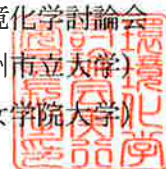 境化学討論会
州市立大学）
女学院大学）
環境化学